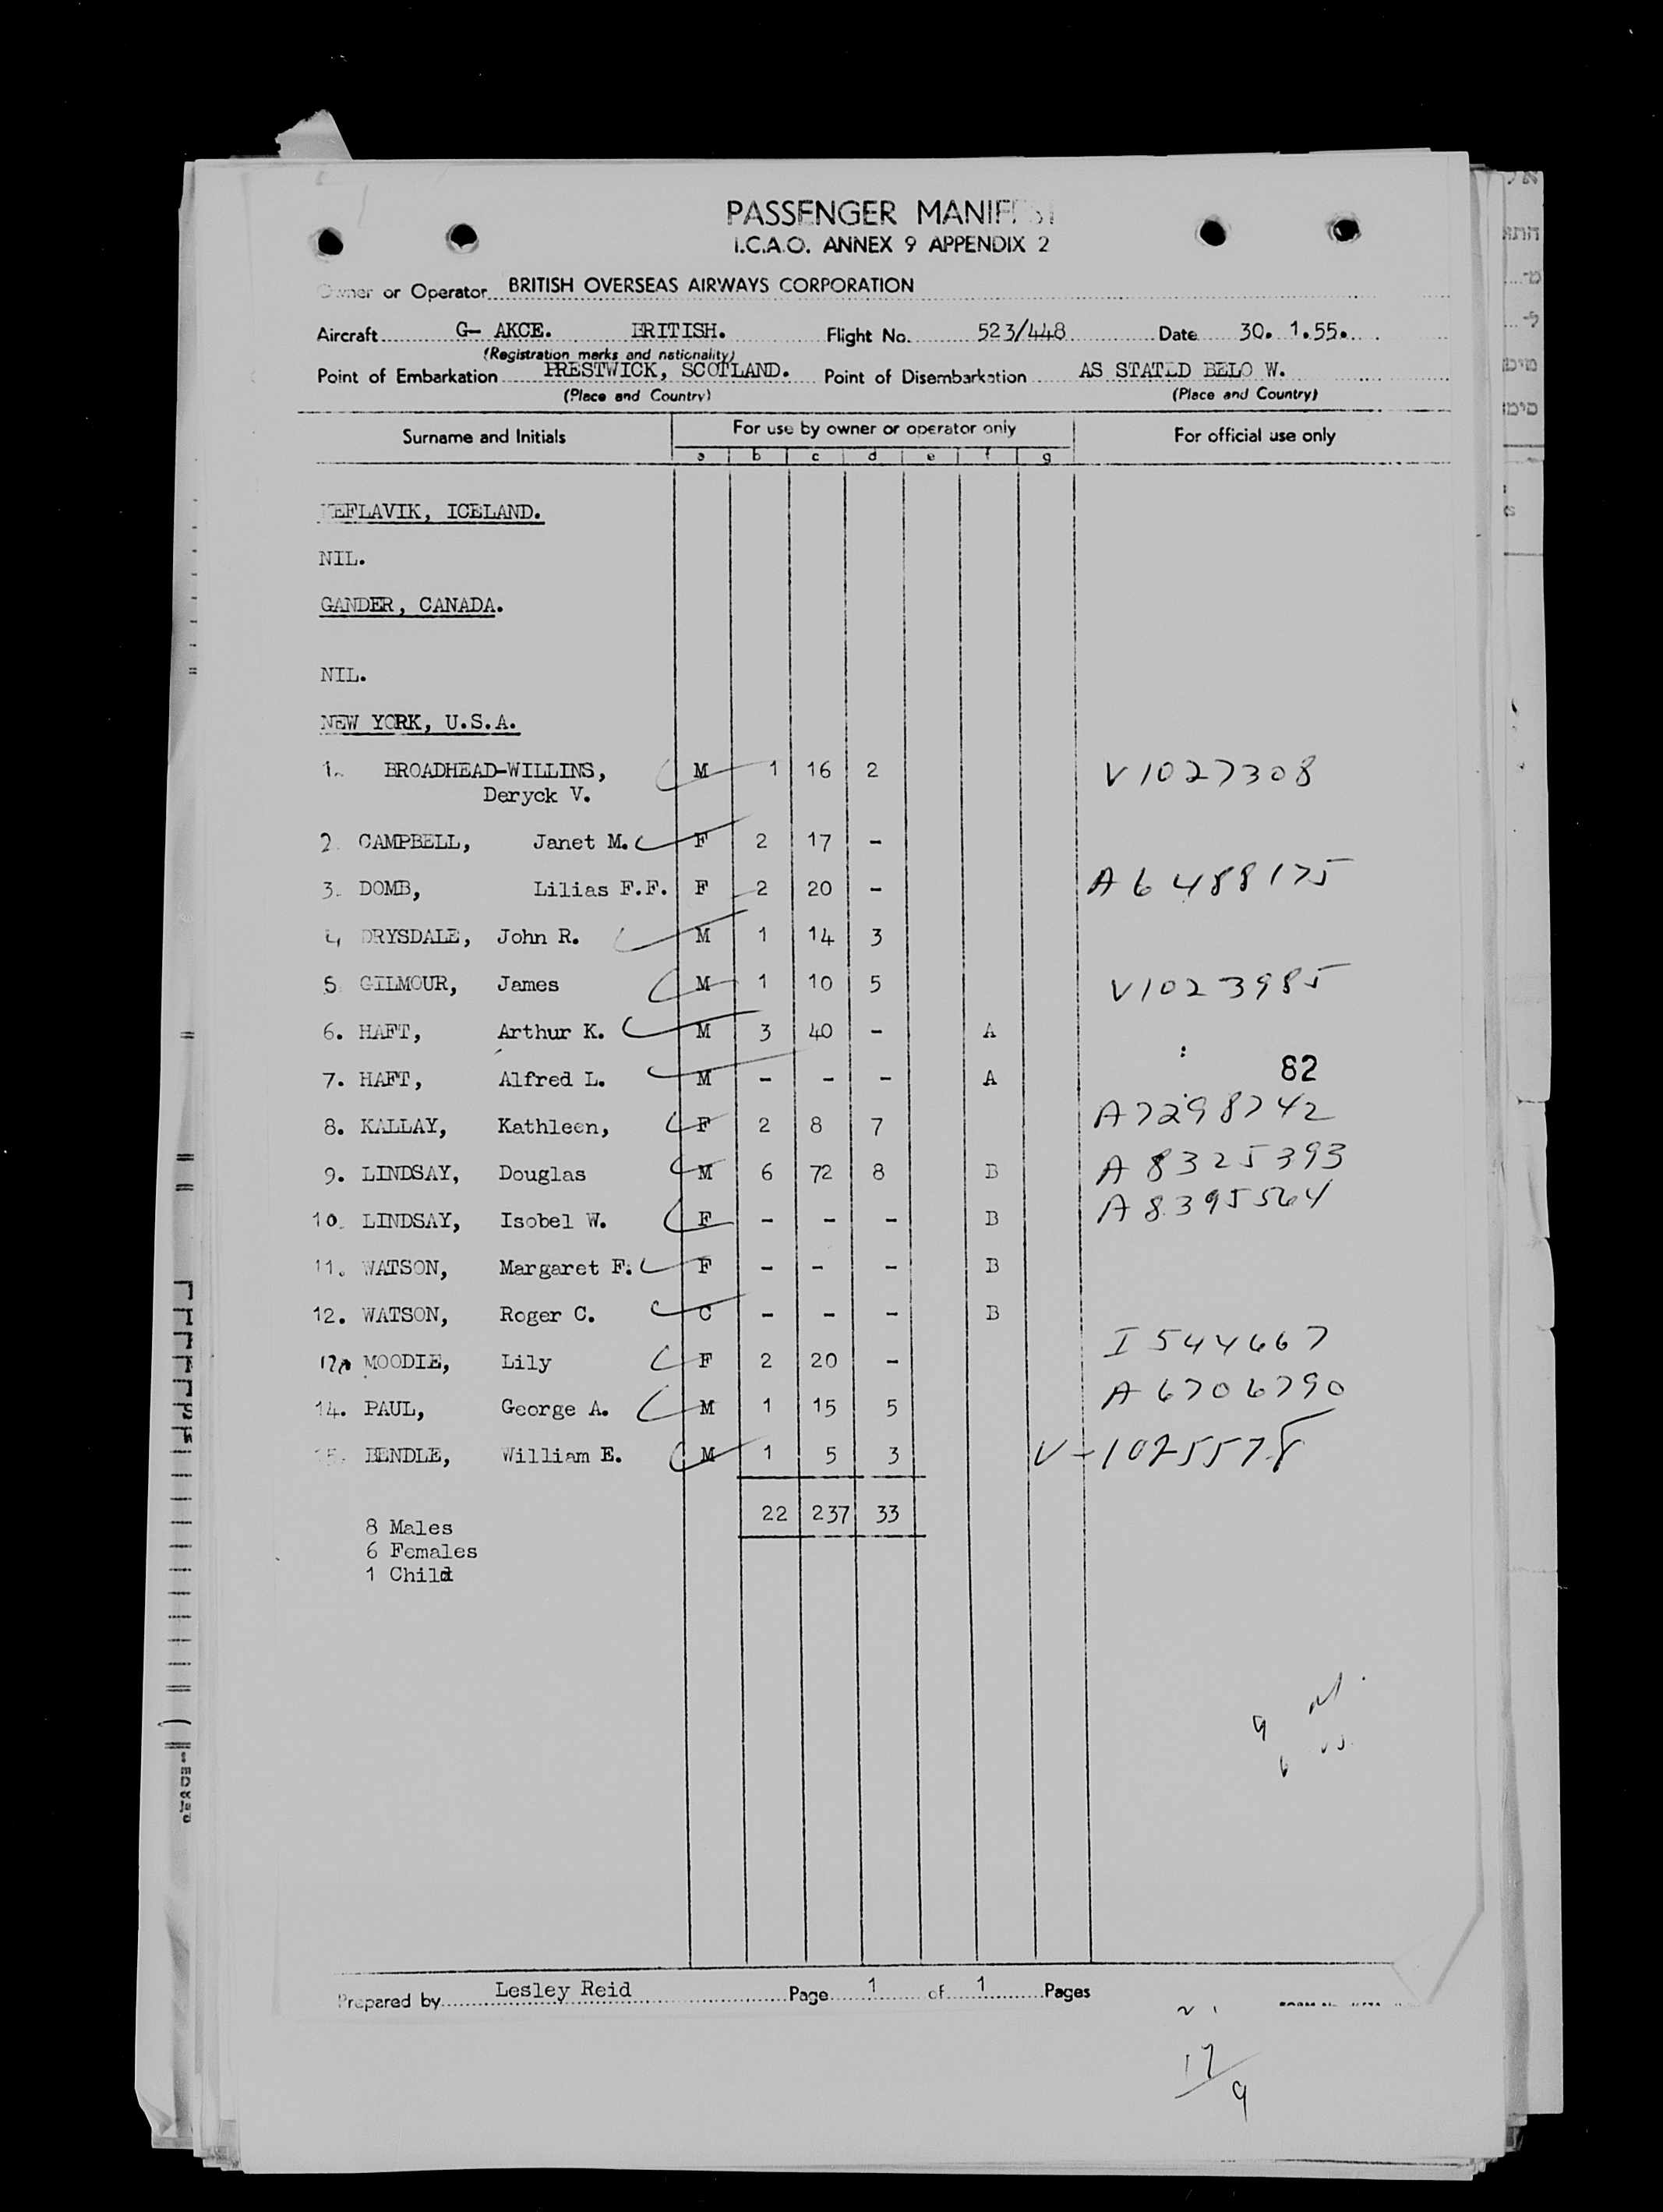 PASSENGER MANIFEST
I.C.A.O. ANNEX 9 APPENDIX 2
Owner or Operator BRITISH OVERSEAS AIRWAYS CORPORATION
Aircraft G- AKCE. BRITISH. Flight No. 523/448 Date 30. 1.55.
(Registration marks and nationality)
Point of Embarkation PRESTWICK, SCOTLAND. Point of Disembarkation AS STATED BELO W.
(Place and Country) (Place and Country)
Surname and Initials For use by owner or operator only For official use only
a b c d e f g
KEFLAVIK, ICELAND.
NIL.
GANDER, CANADA.
NIL.
NEW YORK, U.S.A.
1. BROADHEAD-WILLINS, M 1 16 2 V1027308
Deryck V.
2. CAMPBELL, Janet M. F 2 17 -
3. DOMB, Lilias F.F. F 2 20 - A6488175
4. DRYSDALE, John R. M 1 14 3
5. GILMOUR, James M 1 10 5 V1023985
6. HAFT, Arthur K. M 3 40 - A
7. HAFT, Alfred L. M - - - A 82
8. KALLAY, Kathleen, F 2 8 7 A7298742
9. LINDSAY, Douglas M 6 72 8 B A8325393
10. LINDSAY, Isobel W. F - - - B A8395564
11. WATSON, Margaret F. F - - - B
12. WATSON, Roger C. C - - - B
MOODIE, Lily F 2 20 - I544667
14. PAUL, George A. M 1 15 5 A6706790
15. BENDLE, William E. M 1 5 3 V-1025578
22 237 33
8 Males
6 Females
1 Child
Prepared by Lesley Reid Page 1 of 1 Pages
17/9